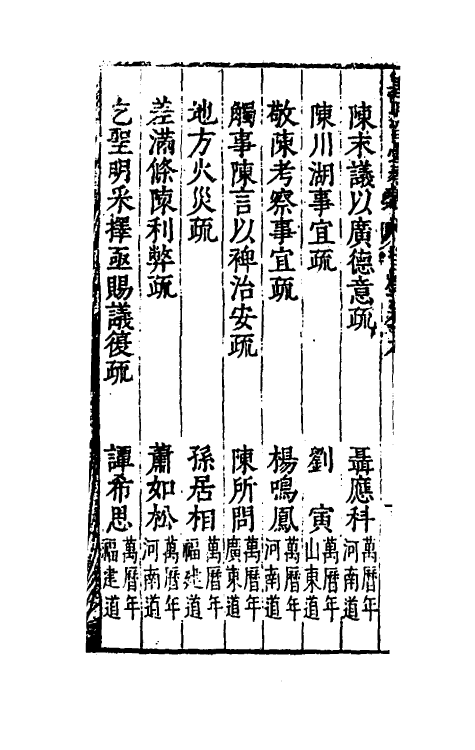 陳末議以廣德意疏　聶應科　萬曆年河南道
陳川湖事宜疏　劉寅　萬曆年山東道
敬陳考察事宜疏　楊鳴鳳　萬曆年河南道
觸事陳言以裨治安疏　陳所問　萬曆年廣東道
地方火災疏　孫居相　萬曆年福建道
差滿條陳利弊疏　蕭如松　萬曆年河南道
乞聖明采擇亟賜議復疏　譚希思　萬曆年福建道